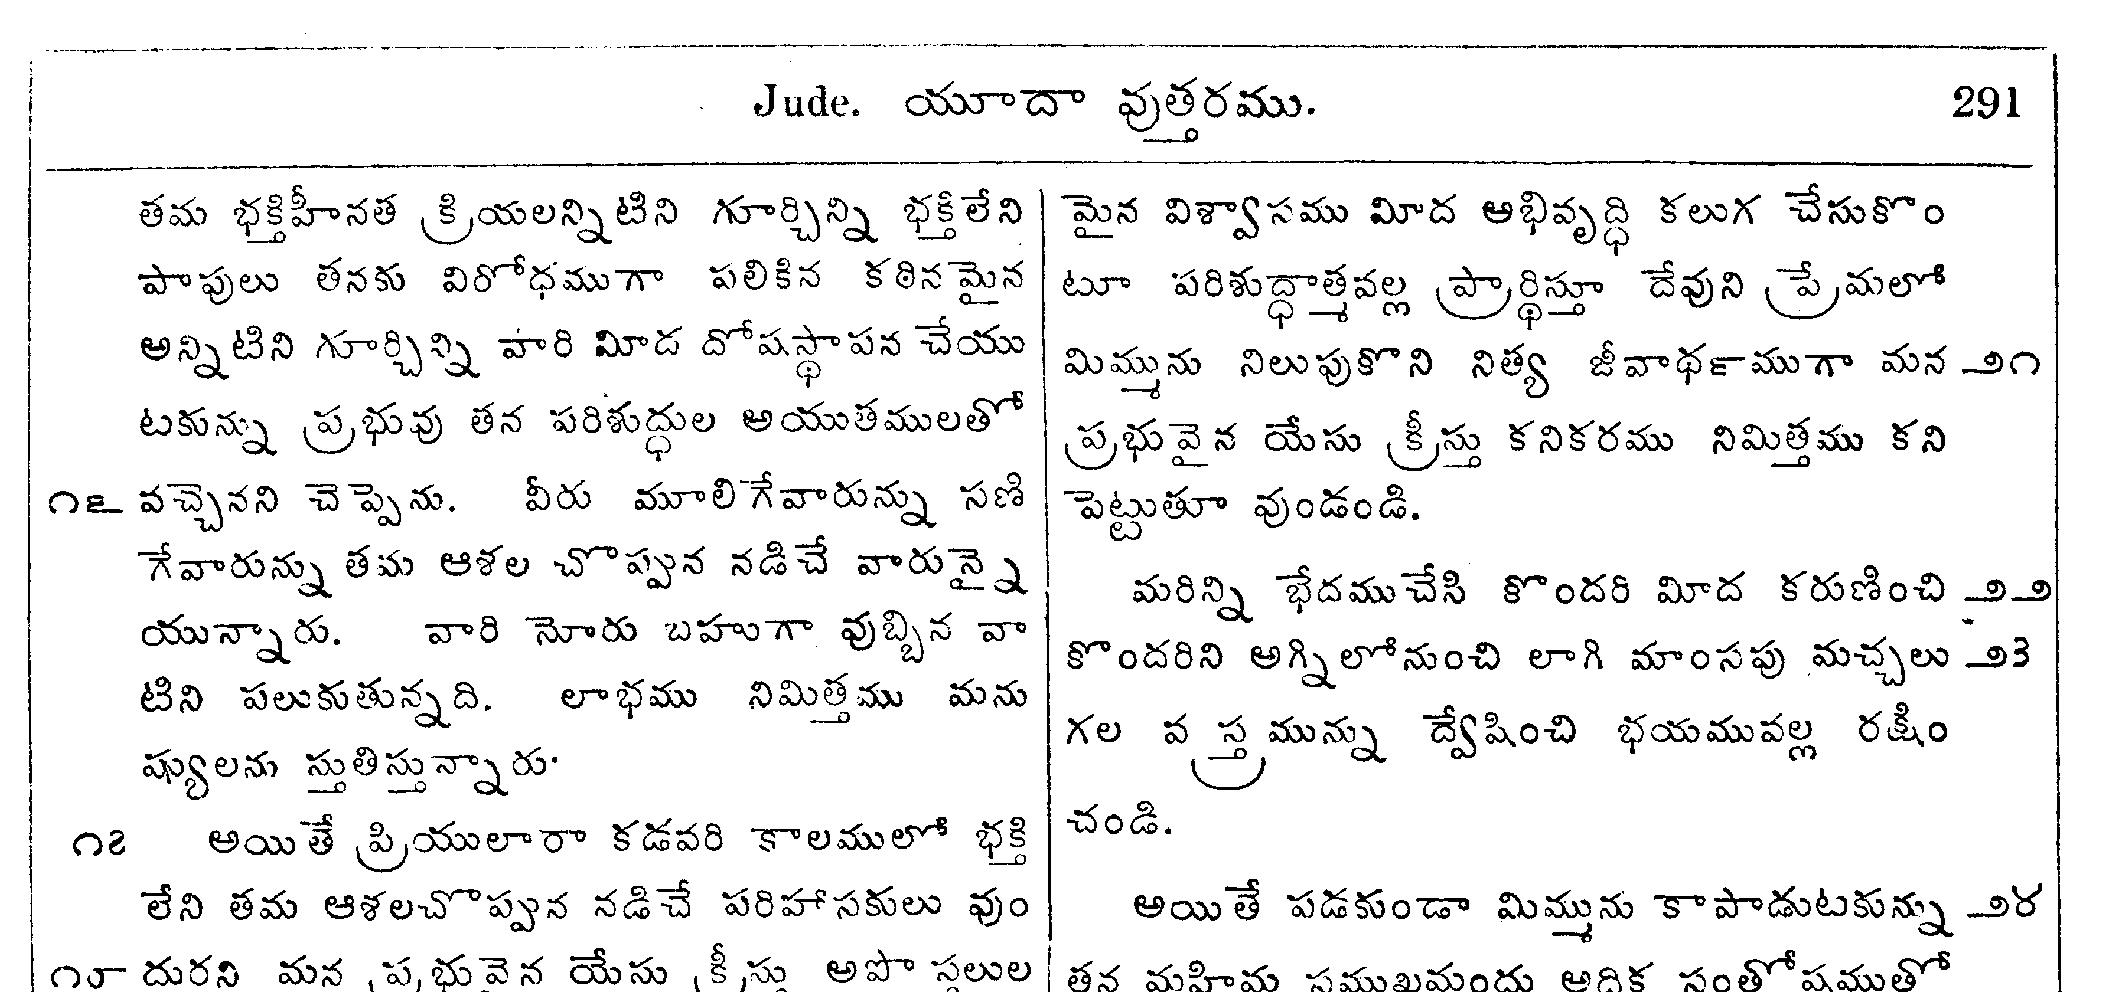 Jude. యూదా వుత్తరము. 291
తమ భక్తిహీనత క్రియలన్నిటిని గూర్చిన్ని భక్తిలేని
పాపులు తనకు విరోధముగా పలికిన కఠినమైన
అన్నిటిని గూర్చిన్ని వారి మీద దోషస్థాపన చేయు
టకున్ను ప్రభువు తన పరిశుద్ధుల అయుతములతో
౧౬ వచ్చెనని చెప్పెను. వీరు మూలిగేవారున్ను సణి
గేవారున్ను తమ ఆశల చొప్పున నడిచే వారున్నై
యున్నారు. వారి నోరు బహుగా వుబ్బిన వా
టిని పలుకుతున్నది. లాభము నిమిత్తము మను
ష్యులను స్తుతిస్తున్నారు.
౧౭ అయితే ప్రియులారా కడవరి కాలములో భక్తి
లేని తమ ఆశలచొప్పున నడిచే పరిహాసకులు వుం
దురని మన ప్రభువైన యేసు క్రీస్తు అపొస్తలుల
మైన విశ్వాసము మీద అభివృద్ధి కలుగ చేసుకొం
టూ పరిశుద్ధాత్మవల్ల ప్రార్థిస్తూ దేవుని ప్రేమలో
మిమ్మును నిలుపుకొని నిత్య జీవాథ౯ముగా మన ౨౧
ప్రభువైన యేసు క్రీస్తు కనికరము నిమిత్తము కని
పెట్టుతూ వుండండి.
మరిన్ని భేదముచేసి కొందరి మీద కరుణించి ౨౨
కొందరిని అగ్నిలోనుంచి లాగి మాంసపు మచ్చలు ౨౩
గల వస్త్రమున్ను ద్వేషించి భయమువల్ల రక్షిం
చండి.
అయితే పడకుండా మిమ్మును కాపాడుటకున్ను ౨౪
తన మహిమ సముఖమందు అధిక సంతోషముతో